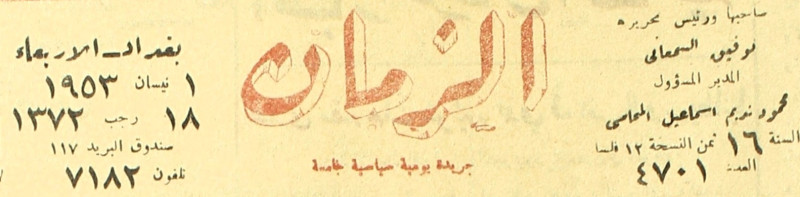 صاحبها ورئيس تحريره
توفيق السمعاني
المدير المسؤول
محمود نديم اسماعيل المحامي
السنة ١٦ ثمن النسخة ١٢ فلسا
العدد ٤٧٠١
الزمان
جريدة يومية سياسية جامعة
بغداد - الاربعاء
١ نيسان ١٩٥٣
١٨ رجب ١٣٧٢
صندوق البريد ١١٧
تلفون ٧١٨٢